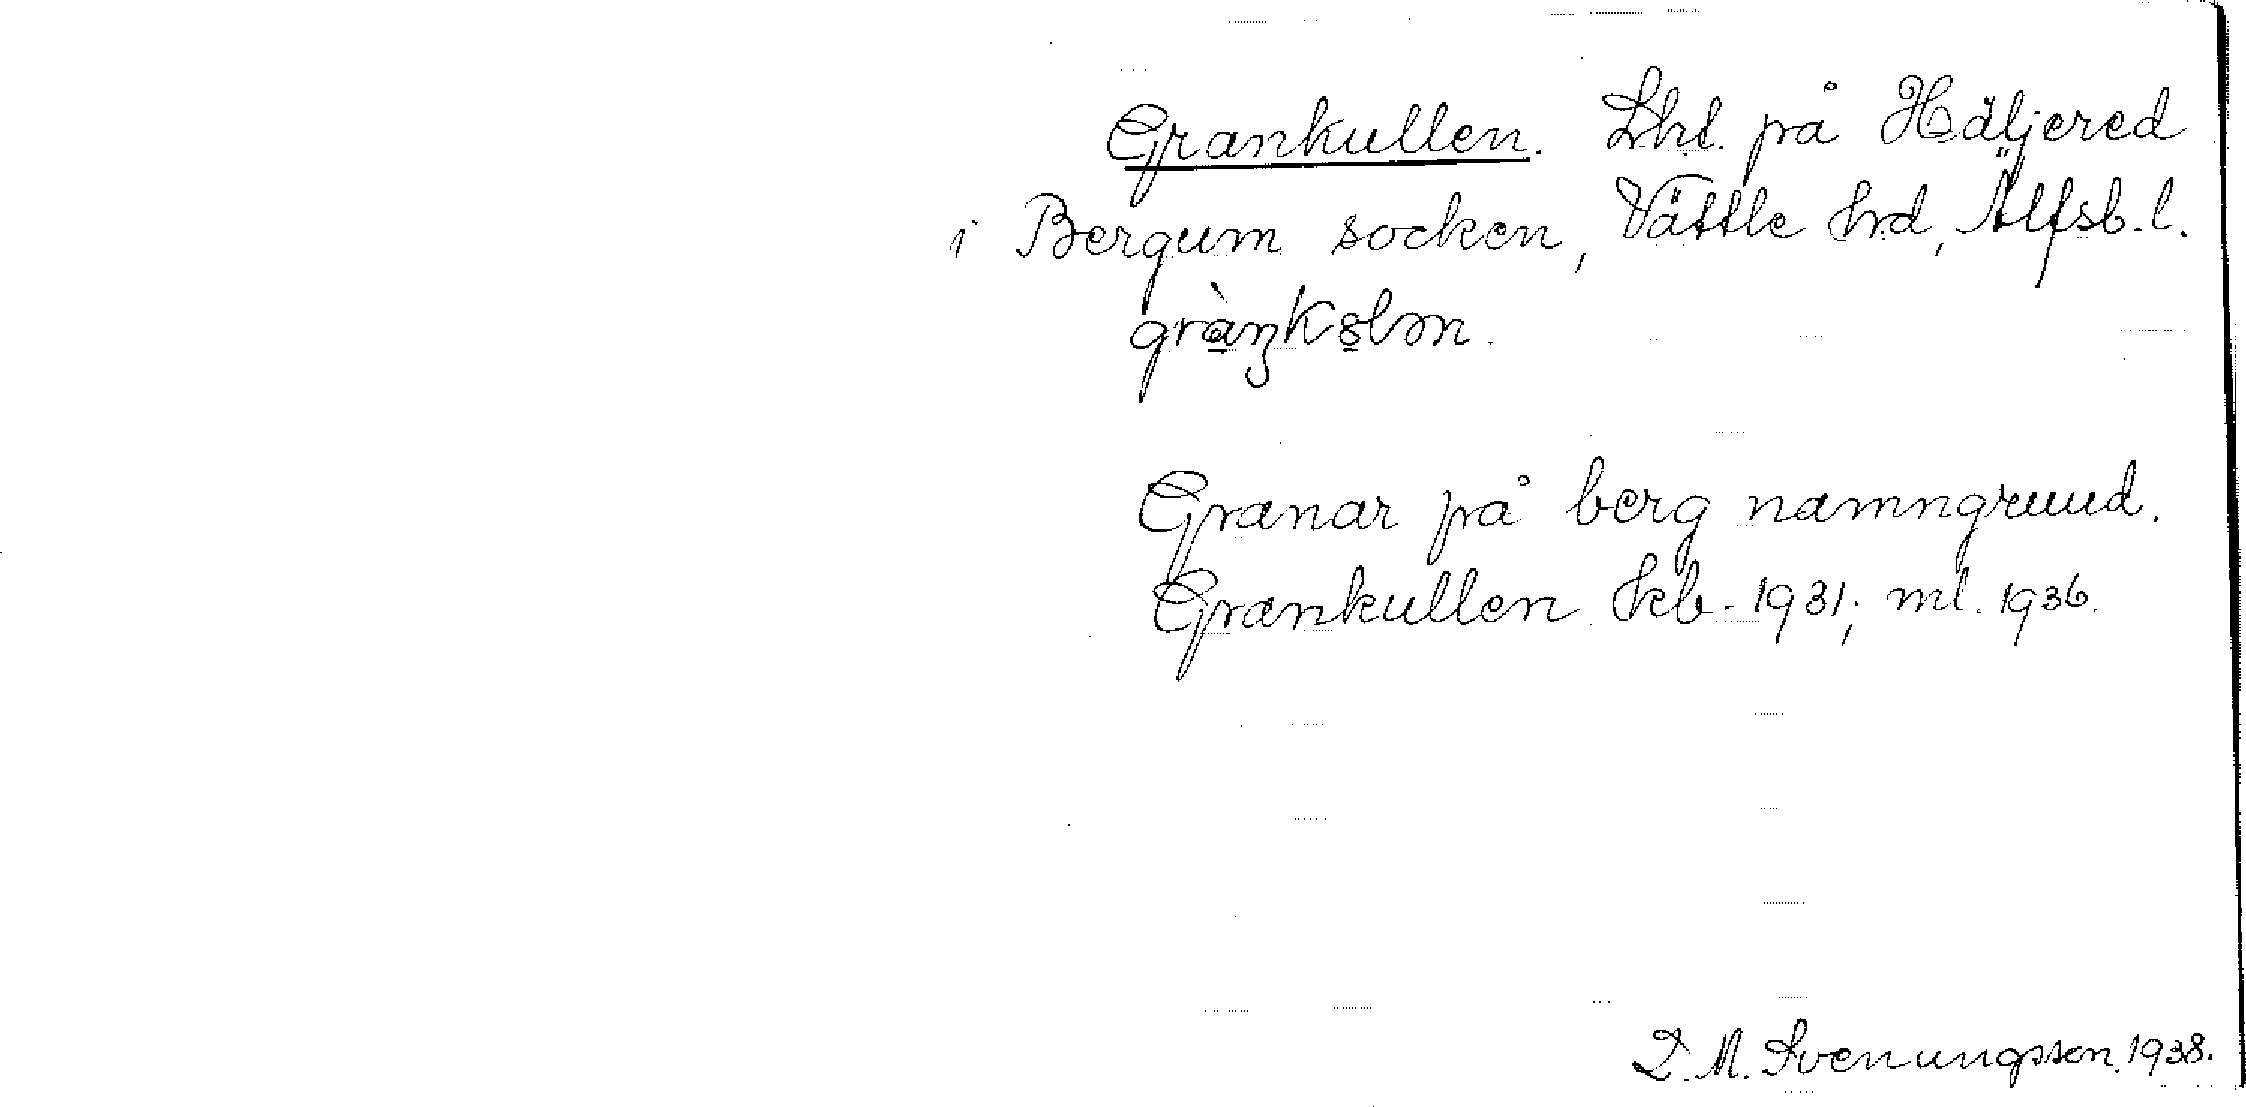 Grankullen. Lht. på Häljered
i Bergum socken, Vättle hrd, Älfsb. l.
Granar på berg namngrund.
Grankullen kb. 1931; ml. 1936.
D. M. Svenungsson. 1938.